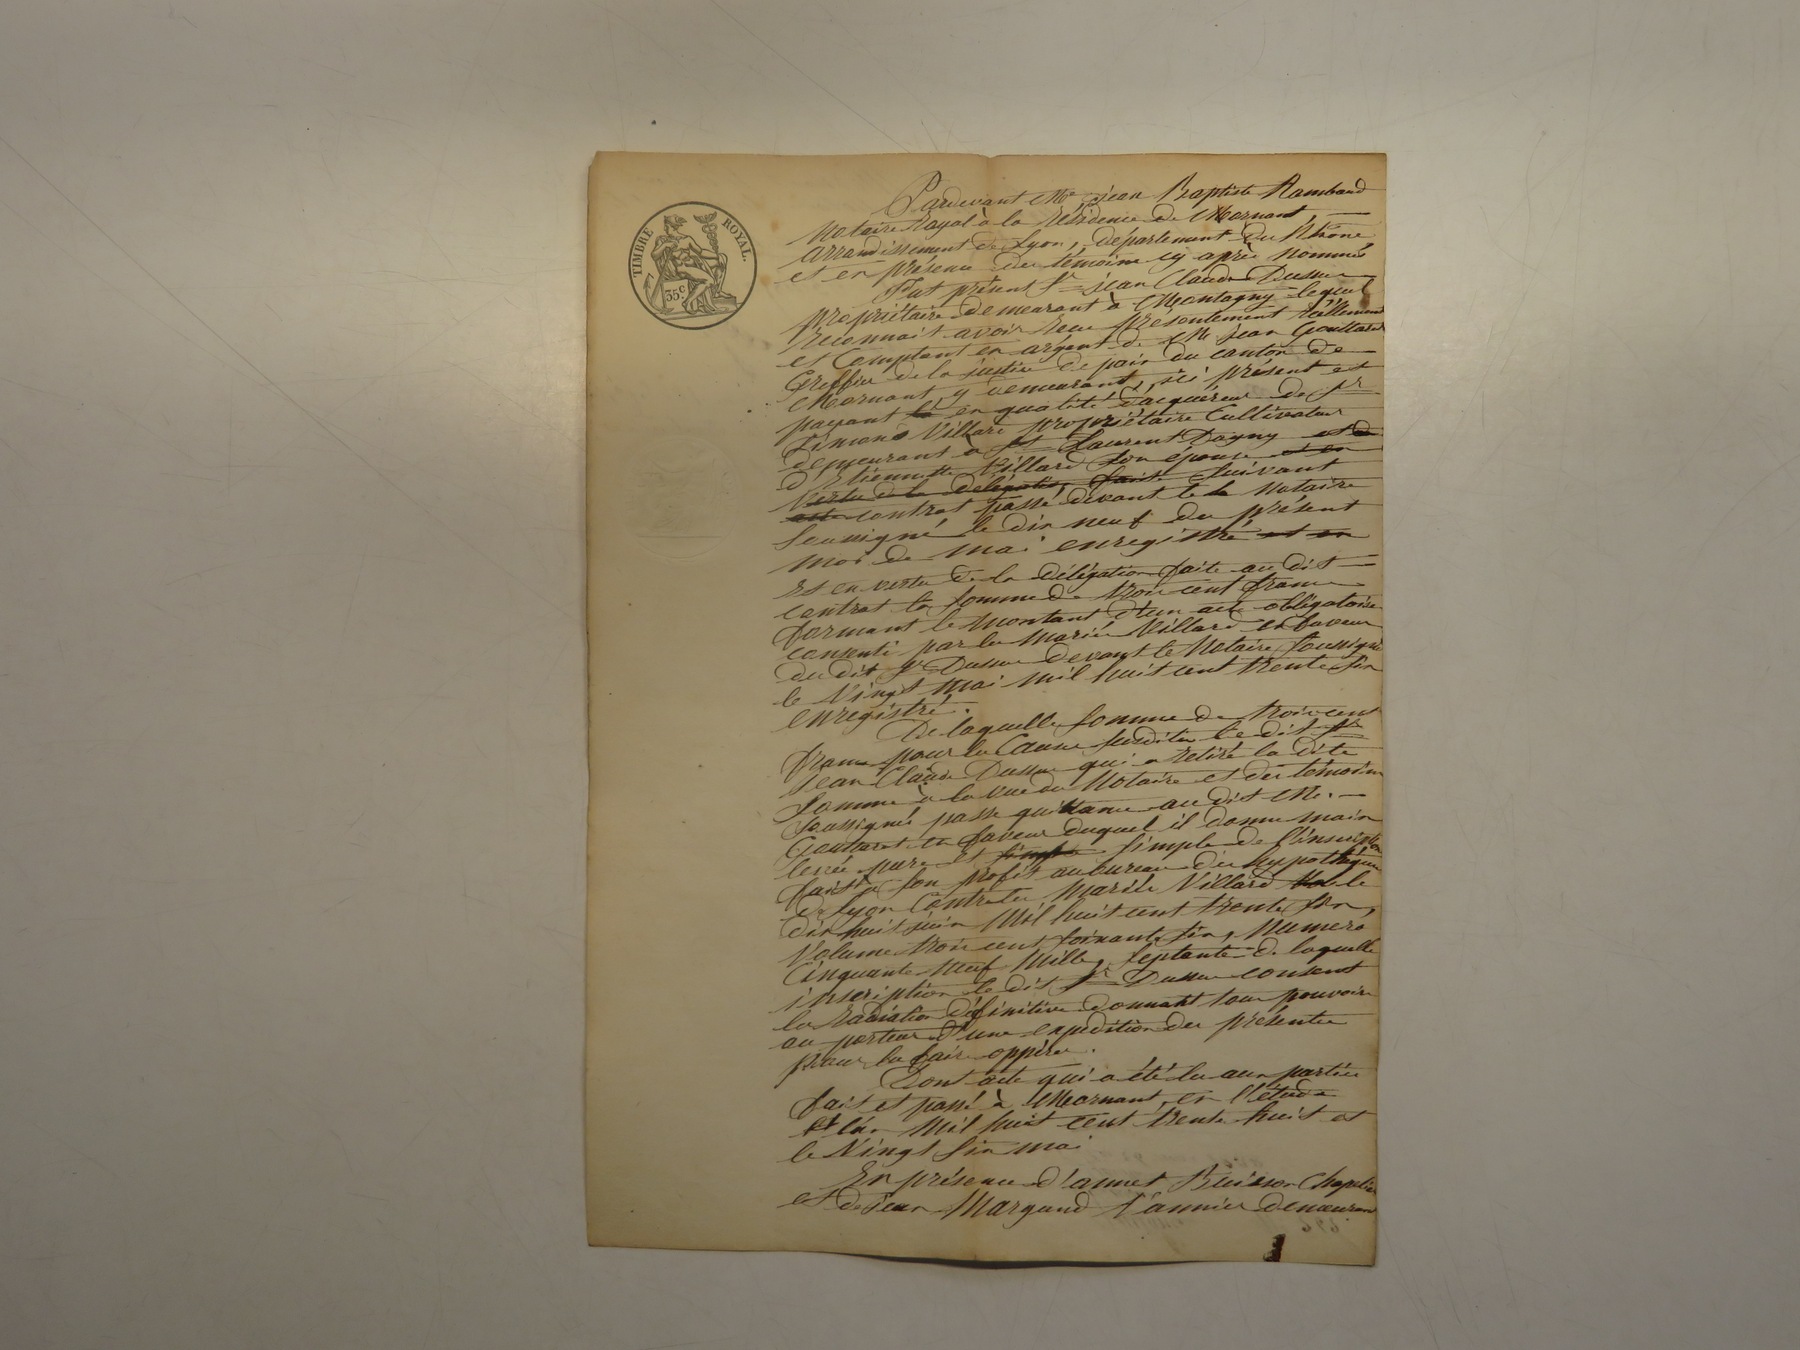 TIMBRE ROYAL.
35c.
Pardevant Me Jean Baptiste Rambaud
Notaire Royal à la résidence de Mornant,
arrondissement de Lyon, département du Rhône
et en présence des témoins cy après nommés
Fut présent Sr Jean Claude
propriétaire demeurant à Montagny lequel
reconnait avoir reçu présentement réellement
et comptant en argent de Me Jean
Greffier de la justice de paix du canton de
Mornant, y demeurant, ici présent et
payant en qualité d'acquéreur de Sr
Simond Villard propriétaire cultivateur
demeurant à St Laurent Dagny et de
d'Etiennette Villard son épouse et en
vertu de la délégation faite suivant
acte contrat passé devant le Notaire
soussigné le dix neuf du présent
mois de mai enregistré et en
Et en vertu de la délégation faite au dit
contrat la somme de trois cent francs
formant le montant d'un acte obligatoire
consenti par les mariés Villard en faveur
du dit Sr devant le Notaire soussigné
le Vingt mai mil huit cent trente six
enregistré.
De laquelle somme de trois cent
francs pour les causes susdites le dit Sr
Jean Claude qui a retiré la dite
somme à la vue du Notaire et des témoins
soussignés passe quittance au dit Me.
en faveur duquel il donne main
levée pure et simple simple de l'inscription
faite à son profit au bureau des hypothèques
de Lyon contre les mariés Villard le
dix huit juin mil huit cent trente six,
Volume trois cent soixante six, Numéro
Cinquante neuf mille septante de laquelle
inscription le dit Sr consent
la radiation définitive donnant tous pouvoirs
au porteur d'une expédition des présentes
pour la faire oppérer.
Dont acte qui a été lu aux parties
fait et passé à Mornant, en l'étude
Et l'an mil huit cent trente huit et
le Vingt six mai
En présence d'annet Buisson Chapelier
et de Jean Margand Vannier demeurant